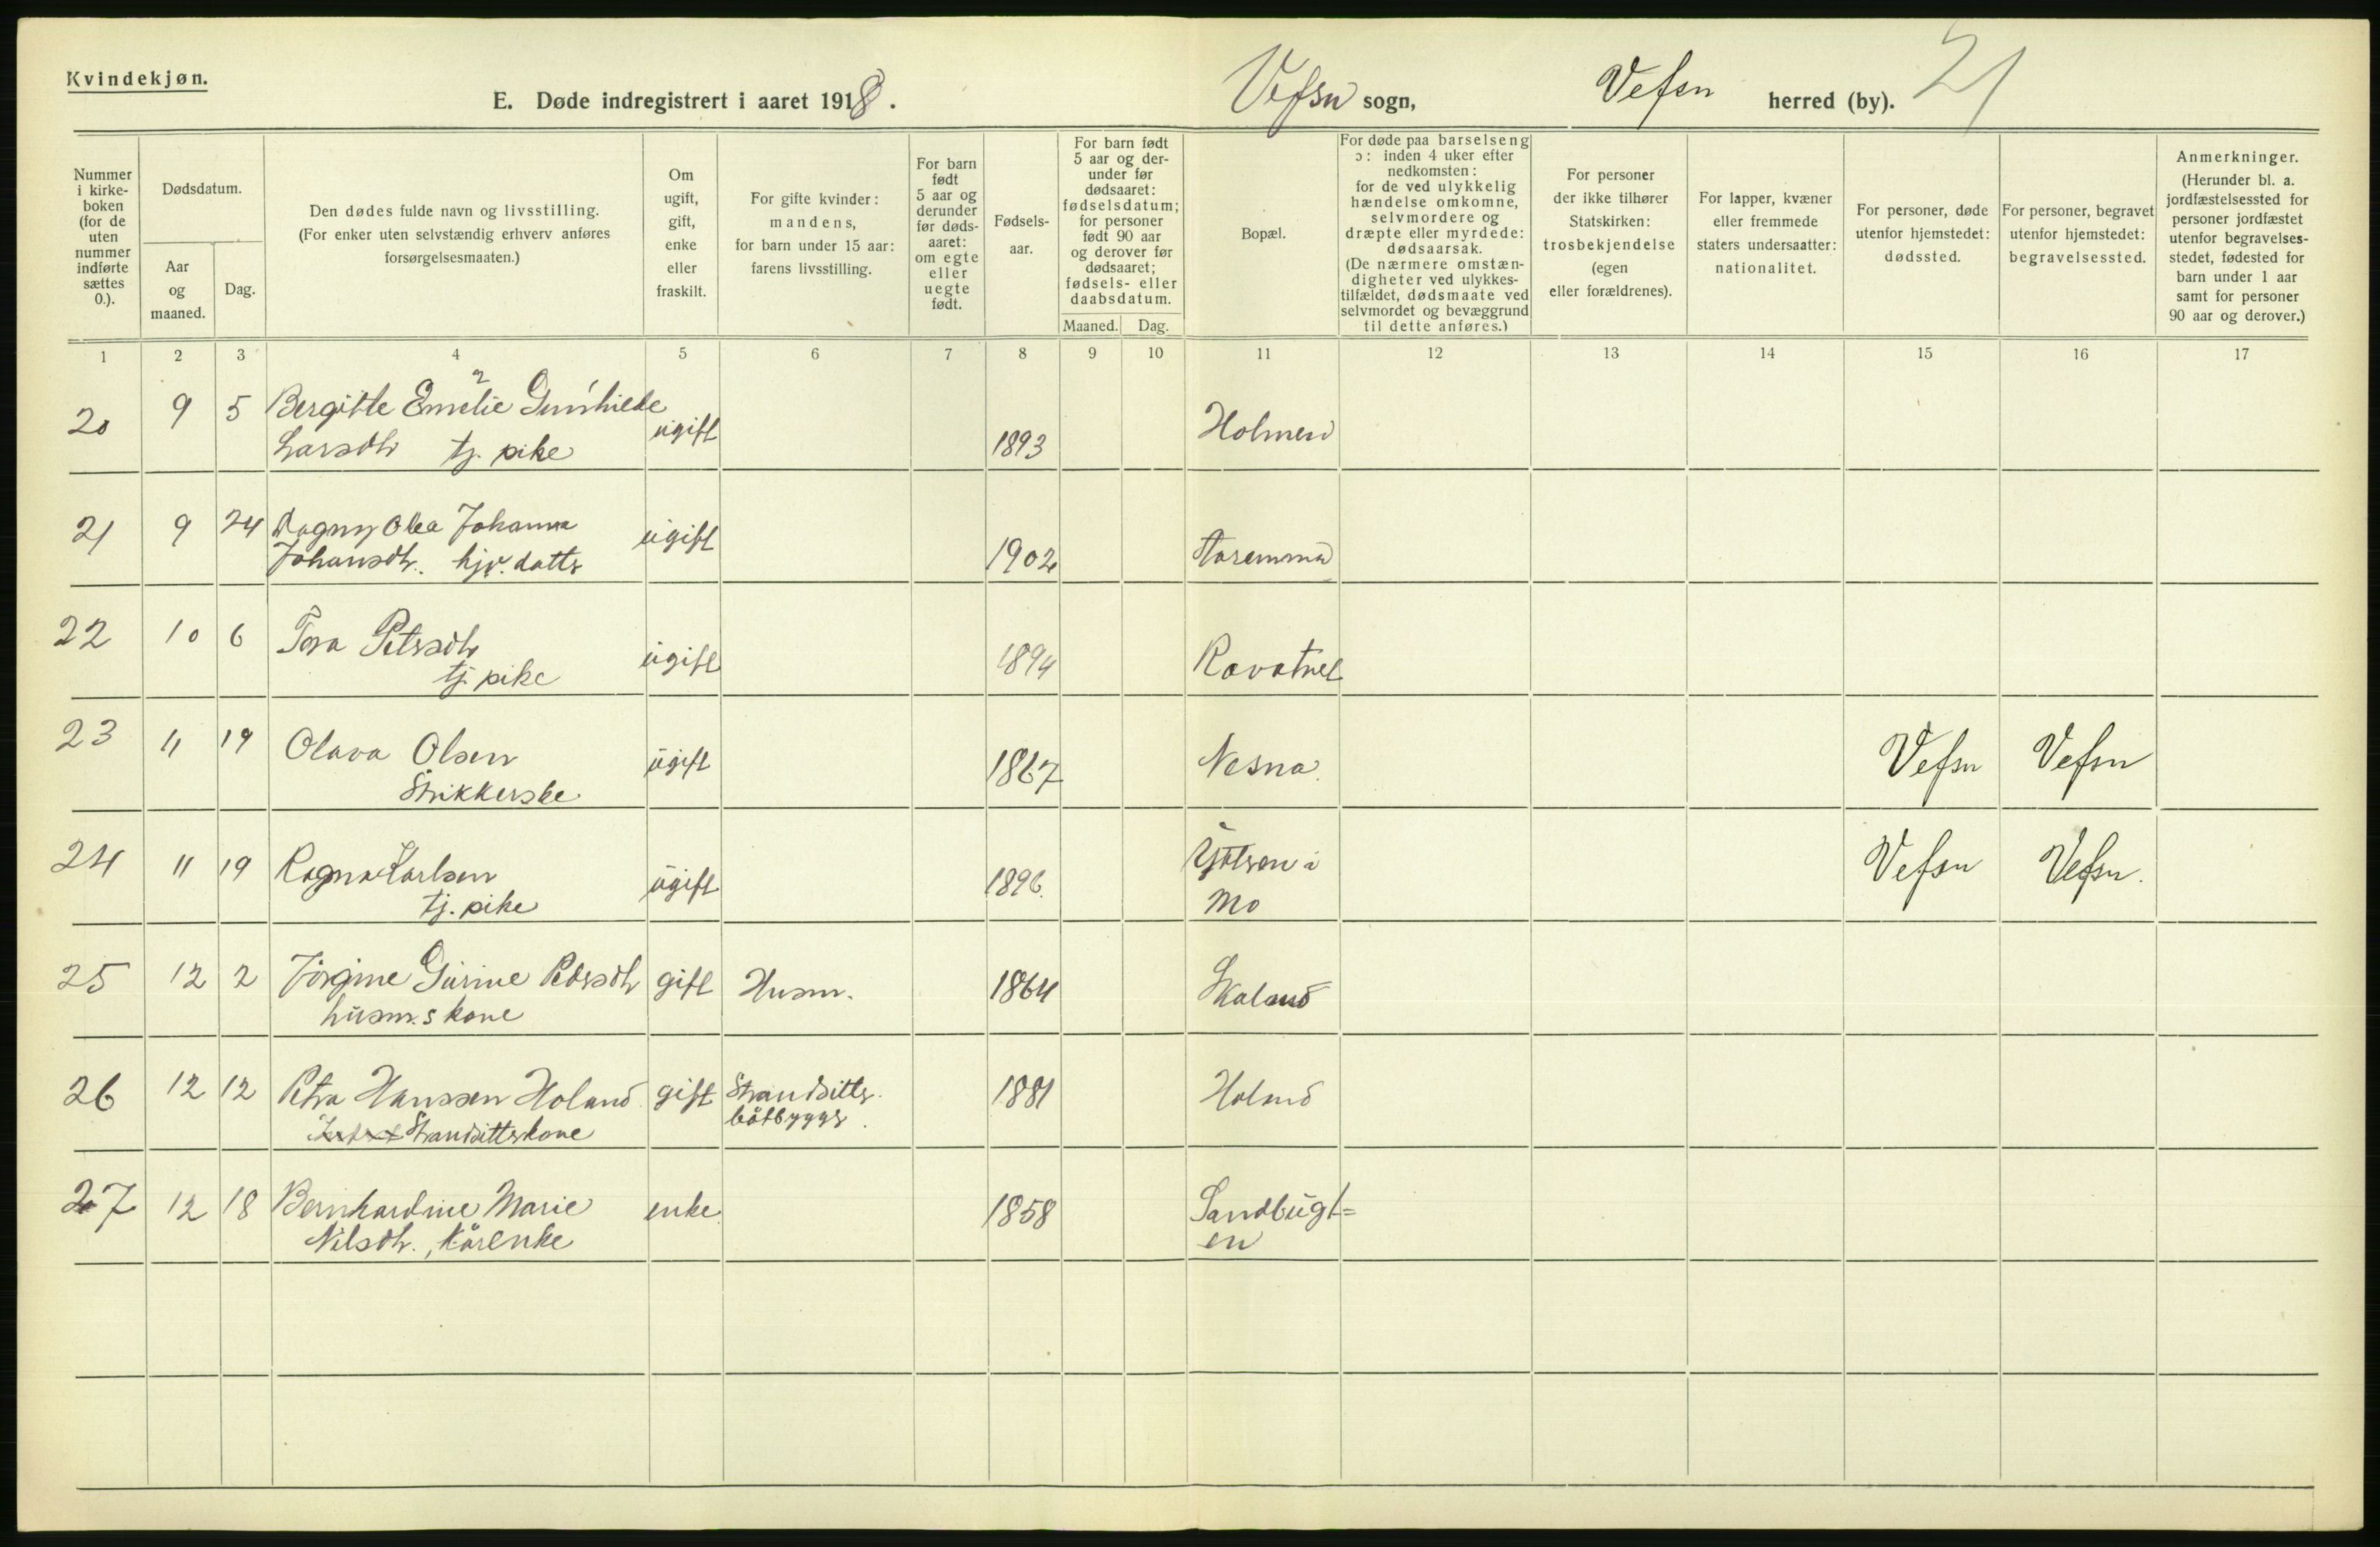 Kvindekjøn.
E. Døde indregistrert i aaret 1918.
Vefsn sogn,
Vefsn herred (by).
21
Nummer i kirkeboken (for de uten nummer indførte sættes 0.).
Dødsdatum.
Aar og maaned.
Dag.
Den dødes fulde navn og livsstilling.
(For enker uten selvstændig erhverv anføres
forsørgelsesmaaten.)
Om ugift, gift, enke eller fraskilt.
For gifte kvinder:
mandens,
for barn under 15 aar:
farens livsstilling.
For barn født 5 aar og derunder før dødsaaret: om egte eller uegte født.
Fødselsaar.
For barn født 5 aar og derunder før dødsaaret: fødselsdatum; for personer født 90 aar og derover før dødsaaret; fødsels- eller daabsdatum.
Maaned. Dag.
Bopæl.
For døde paa barselseng ɔ: inden 4 uker efter nedkomsten: for de ved ulykkelig hændelse omkomne, selvmordere og dræpte eller myrdede: dødsaarsak. (De nærmere omstændigheter ved ulykkestilfældet, dødsmaate ved selvmordet og bevæggrund til dette anføres.)
For personer der ikke tilhører Statskirken: trosbekjendelse (egen eller forældrenes).
For lapper, kvæner eller fremmede staters undersaatter: nationalitet.
For personer, døde utenfor hjemstedet: dødssted.
For personer, begravet utenfor hjemstedet: begravelsessted.
Anmerkninger. (Herunder bl. a. jordfæstelsessted for personer jordfæstet utenfor begravelsesstedet, fødested for barn under 1 aar samt for personer 90 aar og derover.)
1 2 3 4 5 6 7 8 9 10 11 12 13 14 15 16 17
20 9 5 Bergitte Emelie Gunhilde
Larsdtr tj. pike ugift 1893 Holmen
21 9 24 Dagny Olea Johanna
Johansdtr. hjv. datter ugift 1902
22 10 6 Tora Petersdtr
tj. pike ugift 1894
23 11 19 Olava Olsen
Strikkerske ugift 1867 Nesna. Vefsn Vefsn
24 11 19 Ragna Karlsen
tj. pike ugift 1896. i
Mo Vefsn Vefsn.
25 12 2 Jörgine Gurine Pedersdtr gift Husm. 1864
husm.s kone
26 12 12 Petra Hanssen Holand gift Strandsitter 1881
Strandsitterkone båtbygger.
27 12 18 Bernhardine Marie enke 1858 Sandbugt=
Nilsdtr., Kårenke en